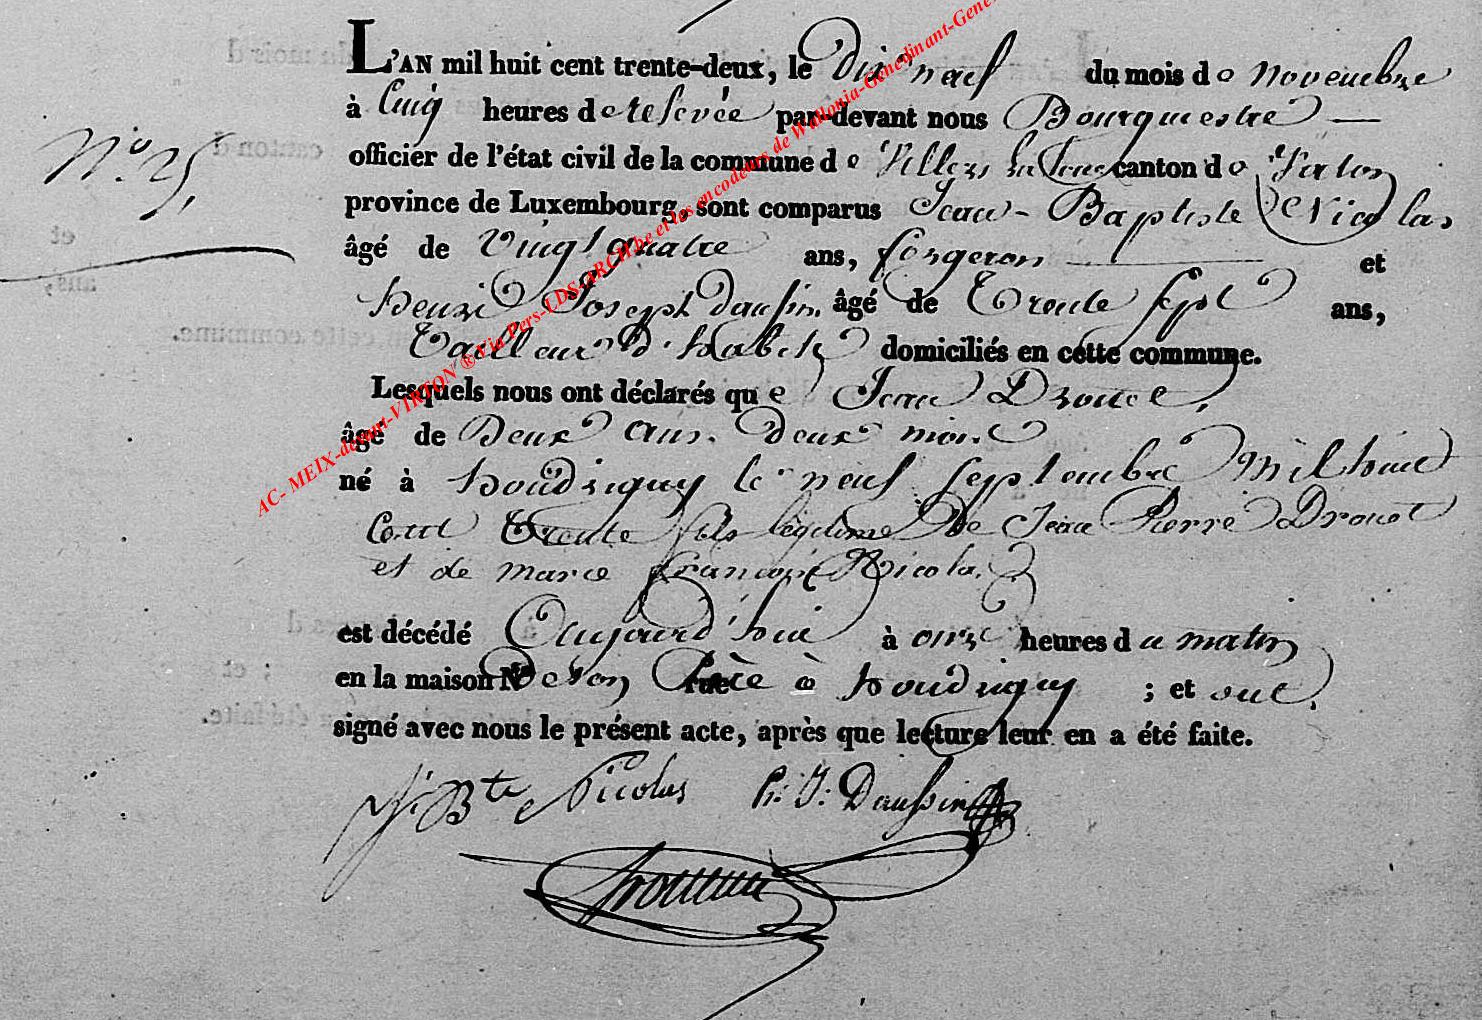 L'AN mil huit cent trente-deux, le dix neuf du mois de novembre
N.° 25,
à Cinq heures de relevée par-devant nous Bourguestre —
officier de l'état civil de la commune de Villers la Loue canton de Virton
province de Luxembourg, sont comparus Jean-Baptiste Nicolas
âgé de Vingt quatre ans, forgeron et
henri Joseph Daussin âgé de Trente sept ans,
Tailleur d'habits domiciliés en cette commune.
Lesquels nous ont déclarés que Jean Drouet,
âgé de Deux ans. deux mois
né à houdrigny le neuf septembre Mil huit
Cent Trente fils légitime de Jean Pierre Drouet
et de marie françoise Nicolas
est décédé Aujourd'hui à onze heures du matin
en la maison N° De son Père rue à houdrigny ; et ont
signé avec nous le présent acte, après que lecture leur en a été faite.
J: Bte Nicolas h: J: Daussin
AC- MEIX-devant-VIRTON ® Via Pers-LDS-ARCH.be et les encodeurs de Wallonia-Genedinant-Gene